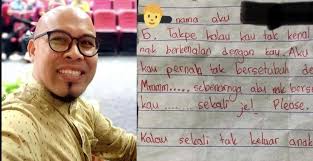 nama aku
6. Takpe kalau kau tak kenal
nak berkenalan dengan kau. Aku
kau pernah tak bersetubuh de
Mmmm..... sebenarnya aku nak bers
kau ..... sekali je! Please.
Kalau sekali tak keluar anak